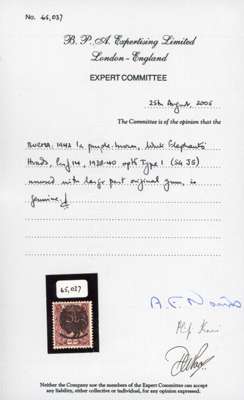 No. 45,037
B. P. A. Expertising Limited
London - England
EXPERT COMMITTEE
25th August, 2005
The Committee is of the opinion that the
BURMA 1942 1a purple-brown, White Elephants
Heads, 1938-40 optd Type 1 (SG J5)
unused with large part original gum, is
genuine.
45,037
Neither the Company nor the members of the Expert Committee can accept
any liability, either collective or individual, for any opinion expressed.